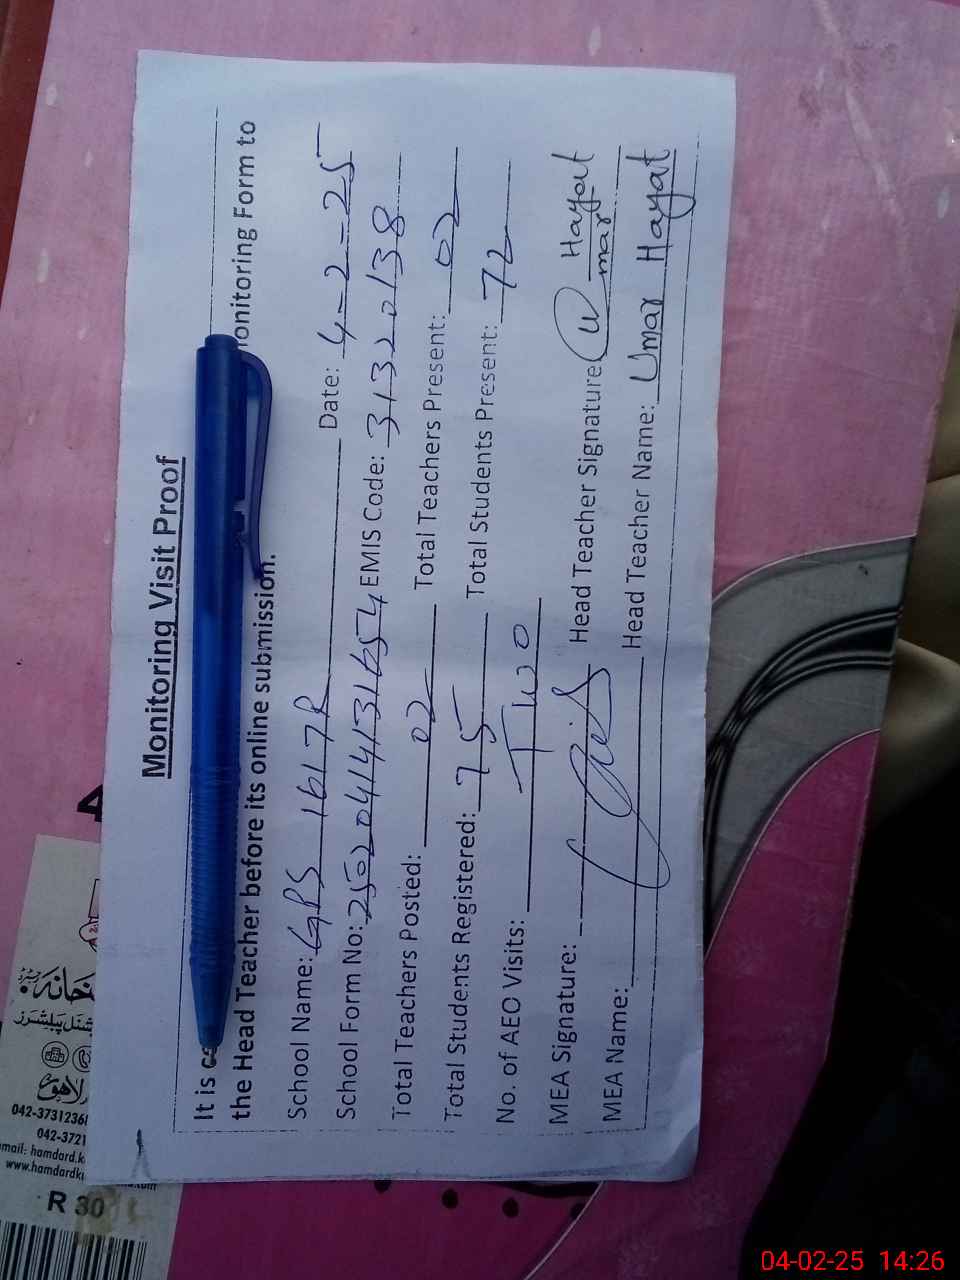 Monitoring Visit Proof
It is onitoring Form to
the Head Teacher before its online submission.
School Name: GPS 161 7R Date: 4-2-25
School Form No: 2502041413 1654 EMIS Code: 31320138
Total Teachers Posted: 02 Total Teachers Present: 02
Total Students Registered: 75 Total Students Present: 72
No. of AEO Visits: Two
MEA Signature: Head Teacher Signature: Umar Hayat
MEA Name: Head Teacher Name: Umar Hayat
4
لاہور
042-3731236
042-3721
mail: hamdard.k
www.hamdardk
R 30
04-02-25 14:26